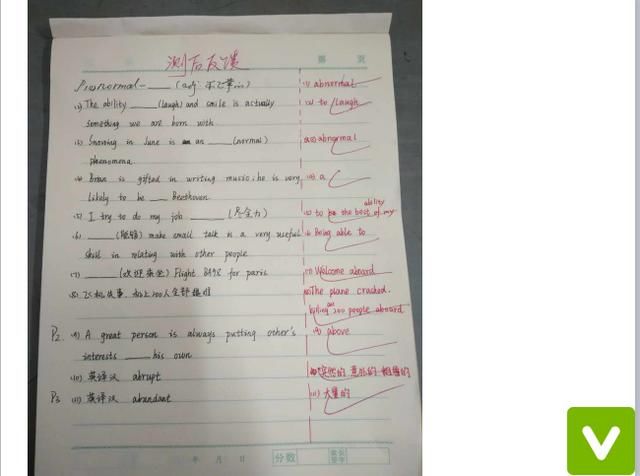 测后反馈
第 页
P1 (1) normal — ___ (adj: 不正常的) (1) abnormal
(2) The ability ___ (laugh) and smile is actually (2) to laugh
something we are born with
(3) Snowing in June is an ___ (normal) (3) abnormal
phenomena.
(4) Brian is gifted in writing music; he is very (4) a
likely to be ___ Beethoven
(5) I try to do my job ___ (尽全力) (5) to the best of my ability
(6) ___ (能够) make small talk is a very useful (6) Being able to
skill in relating with other people
(7) ___ (欢迎乘坐) Flight 8498 for paris (7) Welcome aboard
(8) 飞机失事,机上200人全部遇难 (8) The plane crashed.
killing all 200 people aboard
P2 (9) A great person is always putting other's (9) above
interests ___ his own
(10) 英译汉 abrupt (10) 突然的 意外的
P3 (11) 英译汉 abundant (11) 大量的
年 月 日 分数